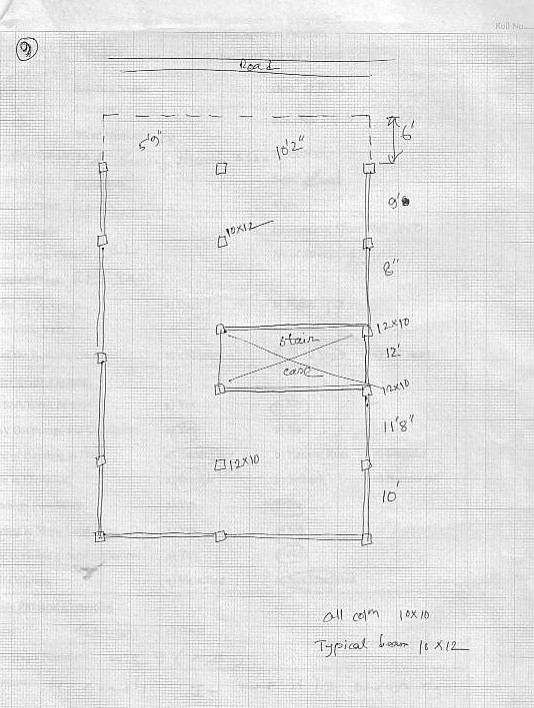 Roll No.
9
Road
6'
5'9"
10'2"
9'
10x12
8"
12x10
stair
12'
case
12x10
11'8"
12x10
10'
all colm 10x10
Typical beam 10 x 12